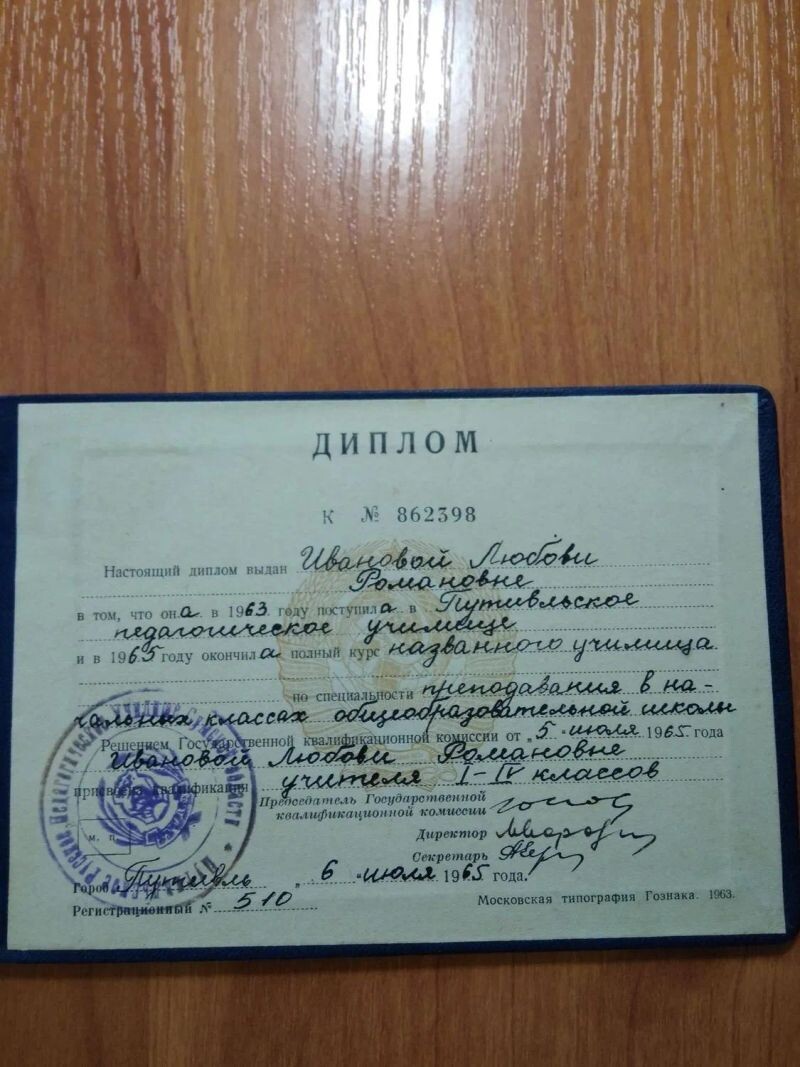 ДИПЛОМ
К № 862398
Настоящий диплом выдан Ивановой Любови
Романовне
в том, что она в 1963 году поступила в Путивльское
педагогическое училище
и в 1965 году окончила полный курс названного училища
по специальности преподавания в на-
чальных классах общеобразовательной школы
Решением Государственной квалификационной комиссии от „5" июля 1965 года
Ивановой Любови Романовне
присвоена квалификация учителя I-IV классов
Председатель Государственной
квалификационной комиссии
Директор
Секретарь
м. п.
Город Путивль „6" июля 1965 года.
Регистрационный № 510
Московская типография Гознака. 1963.